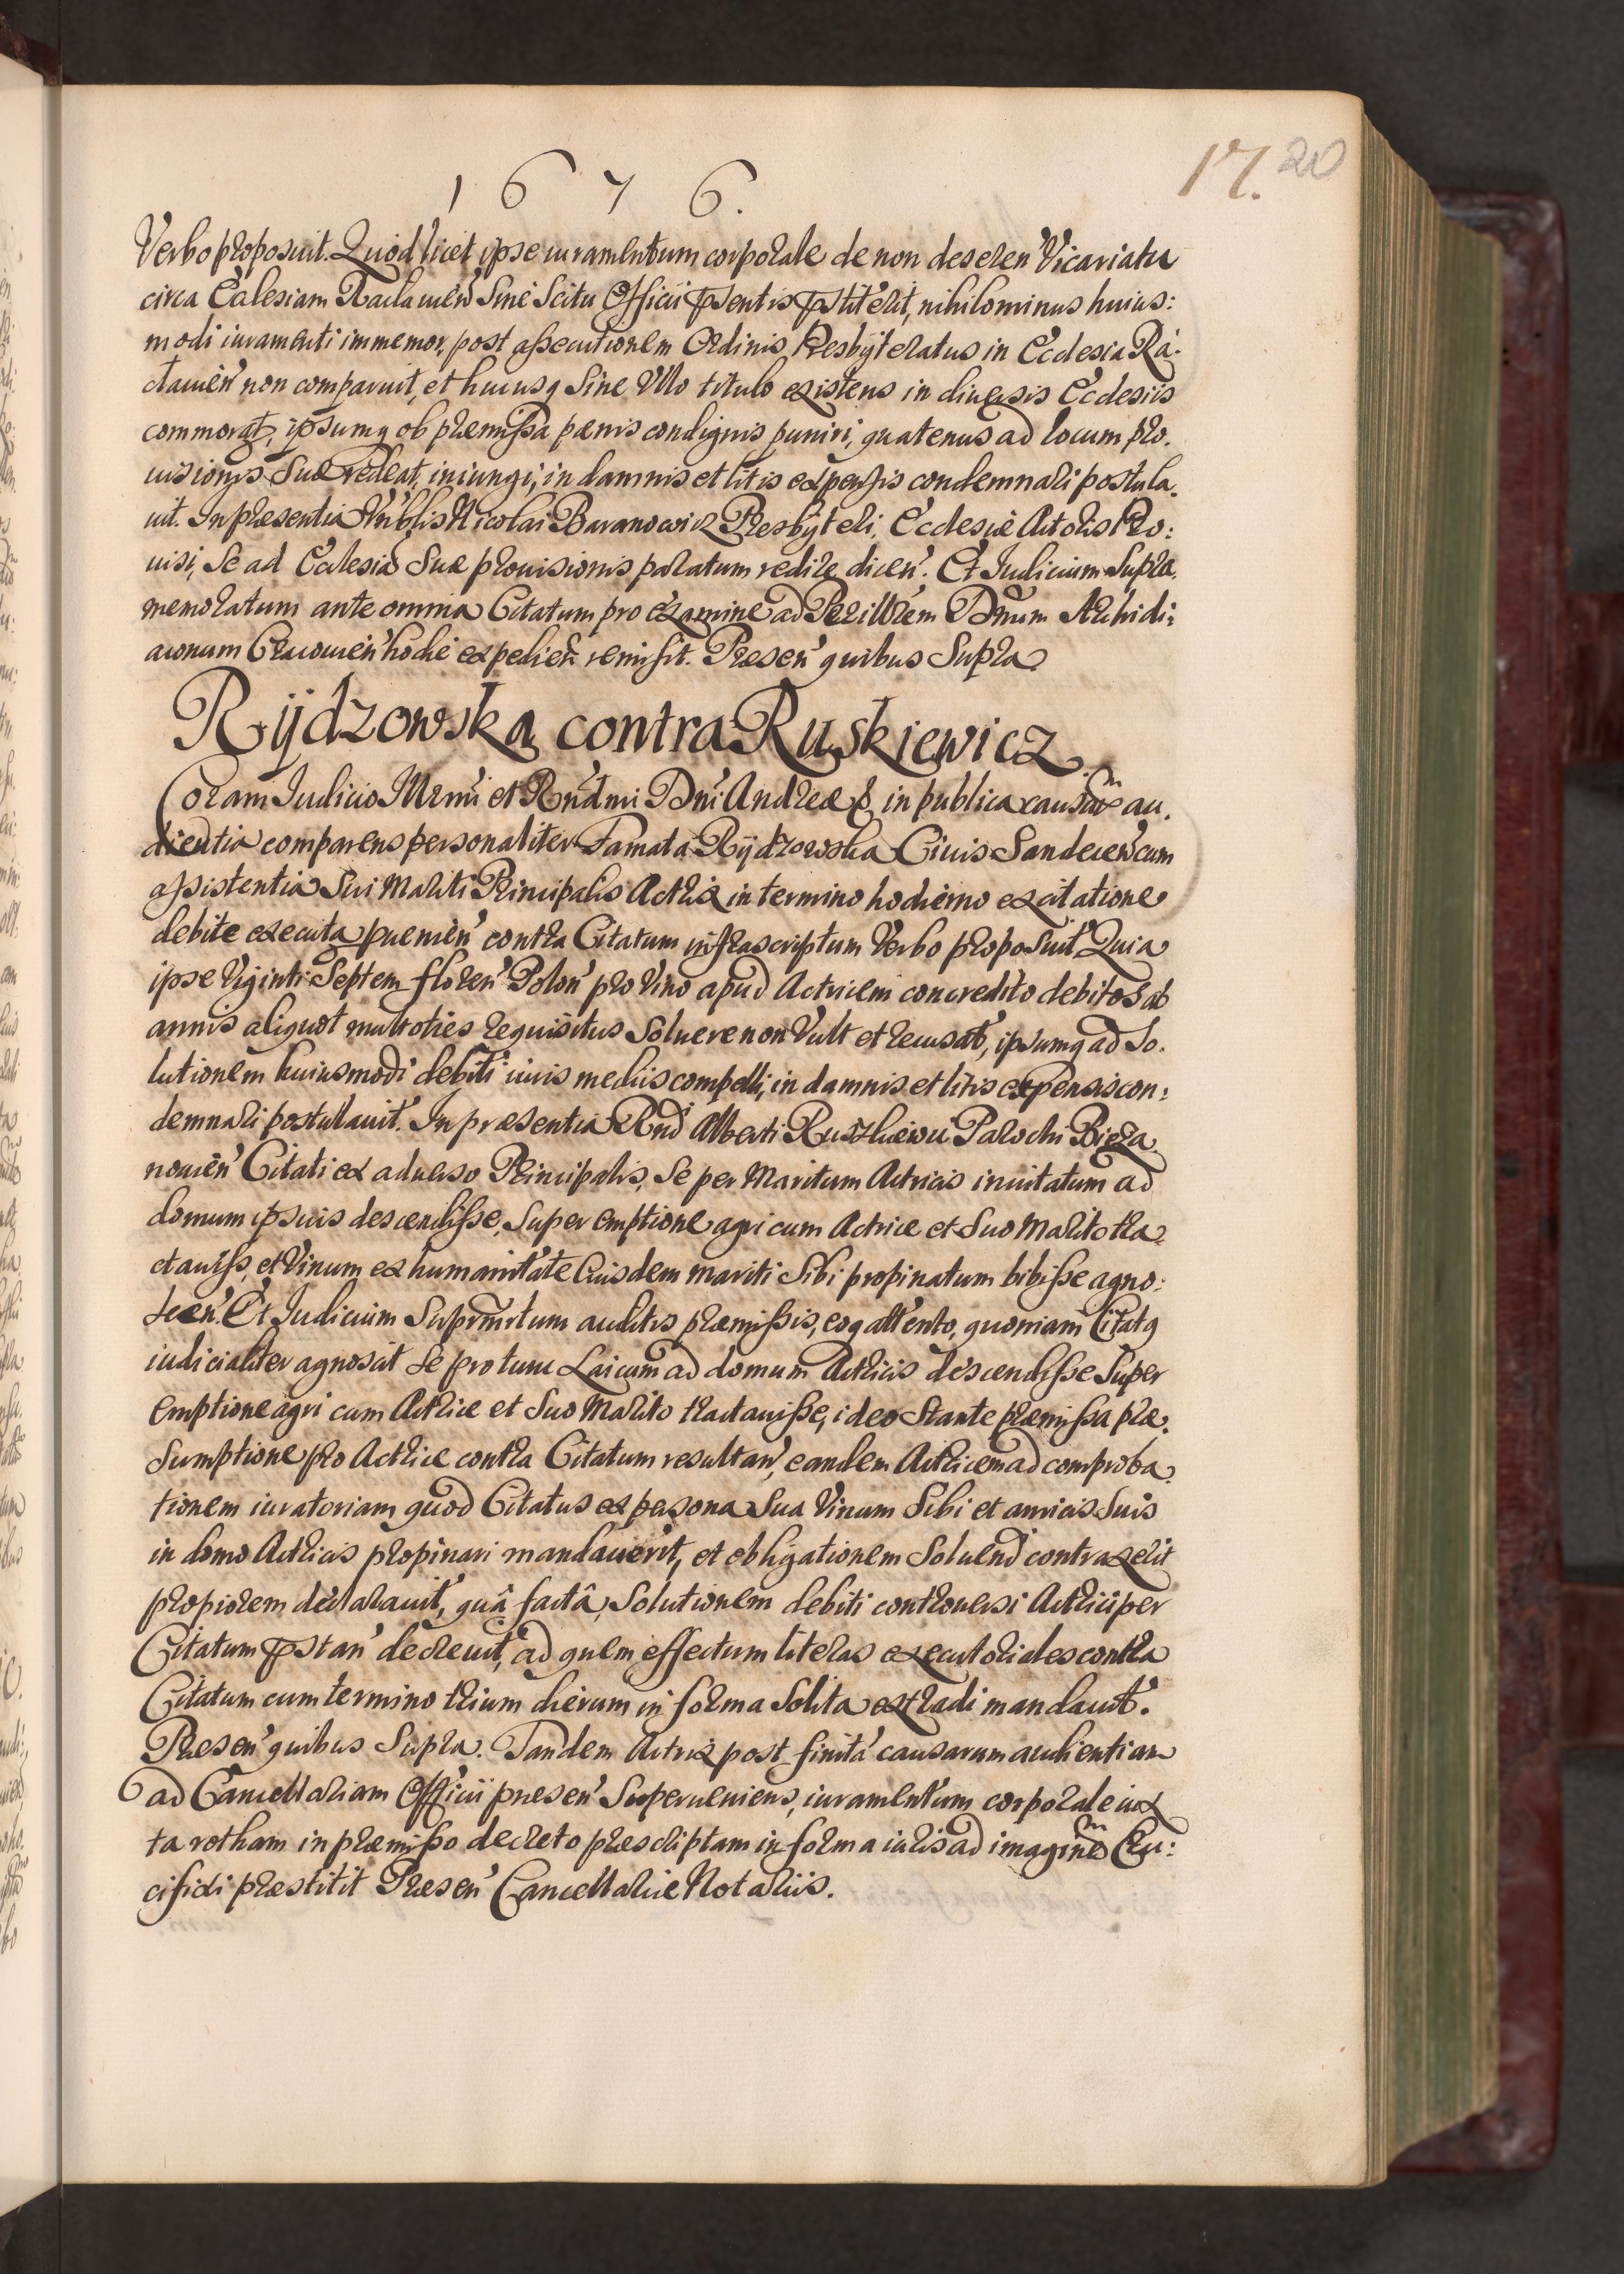 1 6 7 6.
17. 20
Verbo proposuit. Quod licet ipse iuramentum corporale de non deseren̄ Vicariatu
circa Ecclesiam Raclavien̄ Sine Scitu Officii p̄sentis p̄stiterit, nihilominus huius:
modi iuramenti immemor, post assecutionem Ordinis Presbyteratus in Ecclesia Ra-
clavien̄ non comparuit, et hucusq Sine Vllo titulo existens in diuersis Ecclesiis
commorat̄, ipsumq ob præmissa pænis condignis puniri, quatenus ad locum pro-
uisionis Suæ redeat, iniungi, in damnis et litis expensis condemnari postula-
uit. In præsentia Vn̄blis Nicolai Baranowicz Presbyteri, Ecclesiæ Actoris Pro:
uisi, Se ad Ecclesiā Suæ prouisionis paratum redire dicen̄. Et Iudicium Supra
memoratum ante omnia Citatum pro examine ad Perillrem Dnum Archidi:
aconum Cracouien̄ hodie expedien̄ remisit. Presen̄ quibus Supra
Rÿdzowska contra Ruskiewicz
Coram Iudicio Illrmi et Rndmi Dni Andreæ & in publica causarū au-
dientia comparens personaliter Famata Rÿdzowska Ciuis Sandecen̄ cum
assistentia Sui Mariti Principalis Actrix in termino hodierno ex citatione
debite executa puenien̄ contra Citatum infrascriptum Verbo proposuit Quia
ipse Viginti Septem floren̄ Polon̄ pro Vino apud Actricem concredito debitos ab
annis aliquot multoties requisitus Soluere non Vult et recusat, ipsumq ad So-
lutionem huiusmodi debiti iuris mediis compelli, in damnis et litis expensis con:
demnari postulauit. In præsentia Rnd Alberti Ruszkiewicz Parochi Bieza
nouien̄ Citati ex aduerso Principalis, Se per Maritum Actricis inuitatum ad
domum ipsius descendisse, Super emptione agri cum Actrice et Suo Marito tra-
ctauisse, et Vinum ex humanitate Eiusdem mariti Sibi propinatum bibisse agno:
scen̄. Et Iudicium Supramrtum auditis præmissis, eoq attento, quoniam Citatq
iudicialiter agnoscit Se pro tunc Laicum ad domum Actricis descendisse Super
emptione agri cum Actrice et Suo Marito tractauisse, ideo Stante præmissa præ-
Sumptione pro Actrice contra Citatum resultan̄, eandem Actricem ad comproba-
tionem iuratoriam quod Citatus ex persona Sua Vinum Sibi et amicis Suis
in domo Actricis propinari mandauerit, et obligationem Soluend̄ contraxerit
propiorem declarauit, quâ factâ, Solutionem debiti controuersi Actrici per
Citatum p̄stan̄ decreuit, ad quem effectum literas executoriales contra
Citatum cum termino trium dierum in forma Solita extradi mandauit.
Præsen̄ quibus Supra. Tandem Actrix post finitā causarum audientiam
ad Cancellariam Officii presen̄ Superueniens, iuramentum corporale iux
ta rotham in præmisso decreto præscriptam in forma iuris ad imaginem Cru:
cifixi præstitit Præsen̄ Cancellariæ Notariis.